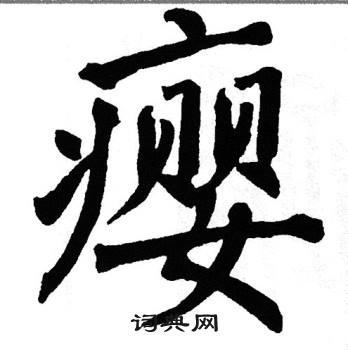 瘿
词典网